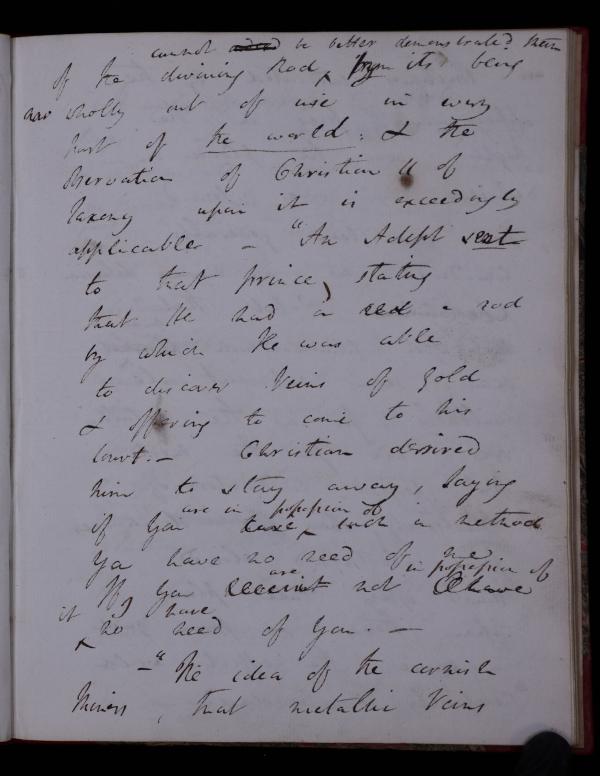 cannot be better demonstrated than
of the divining Rod from its being
now wholly out of use in every
part of the world: & the
observation of Christian II of
Saxony upon it is exceedingly
applicable – "An Adept sent
to that prince, stating
that He had a rod
by which He was able
to discover Veins of Gold
& offering to come to his
Court. – Christian desired
him to stay away, saying
are in possession of
if You have such a method
You have no need of me
are in possession of
If You not have
it I have
no need of You. –
– "The idea of the cornish
Miners, that metallic Veins